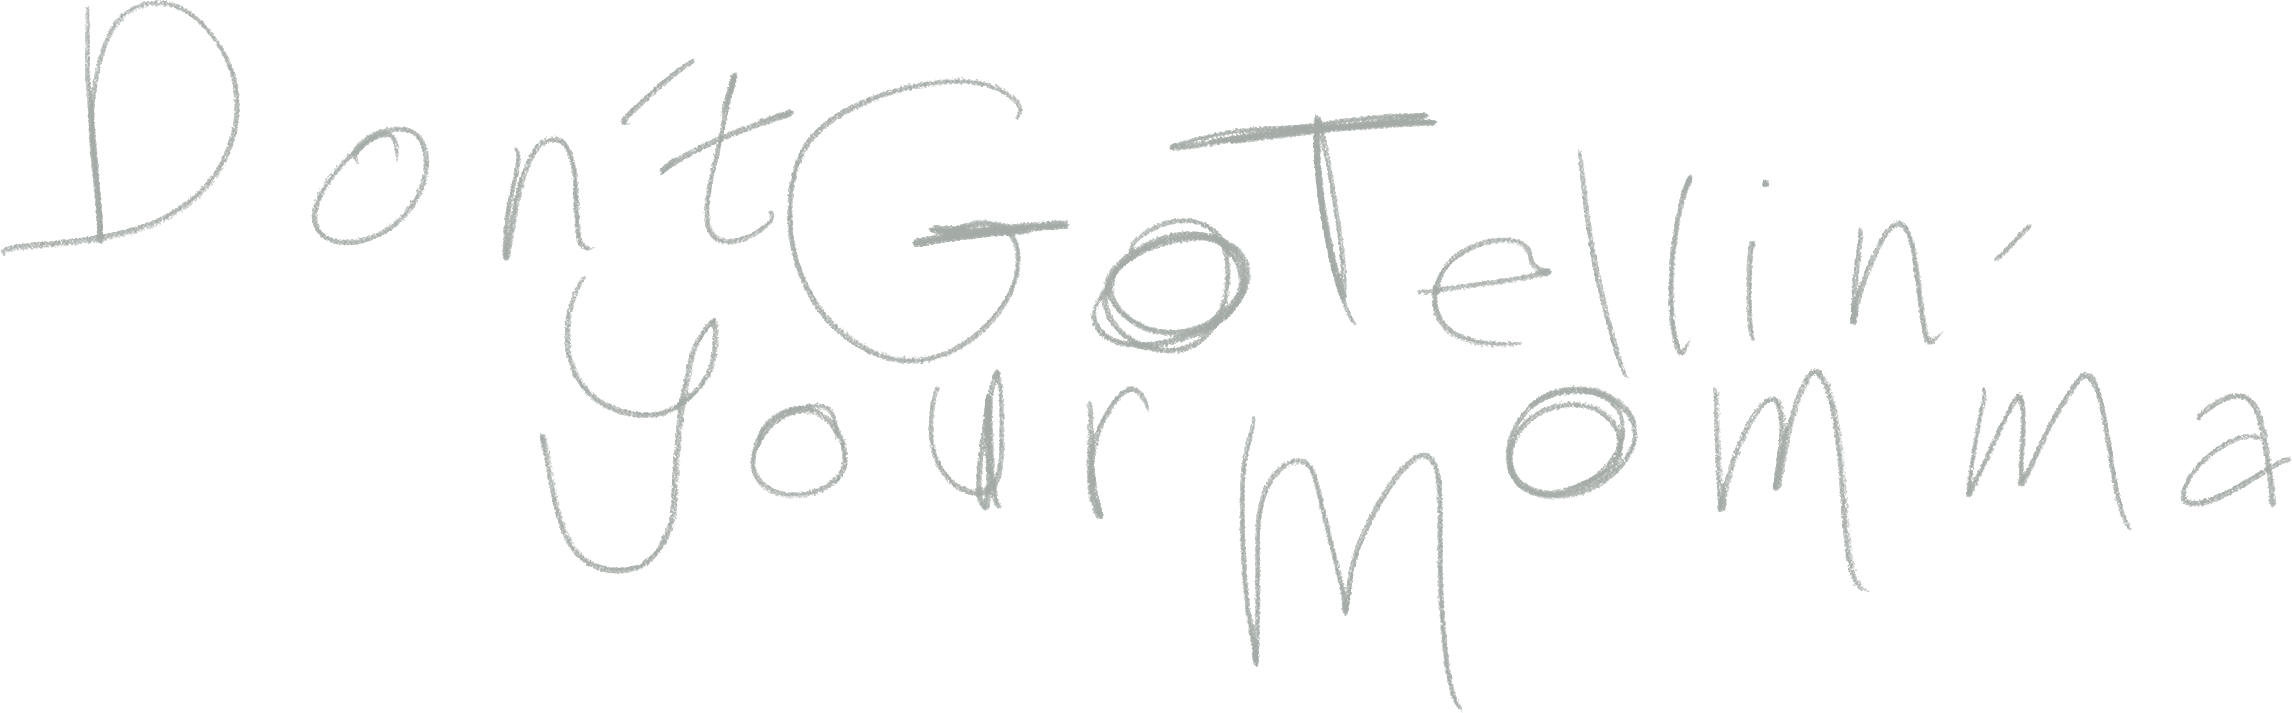 Don't Go Tellin'
Your Momma